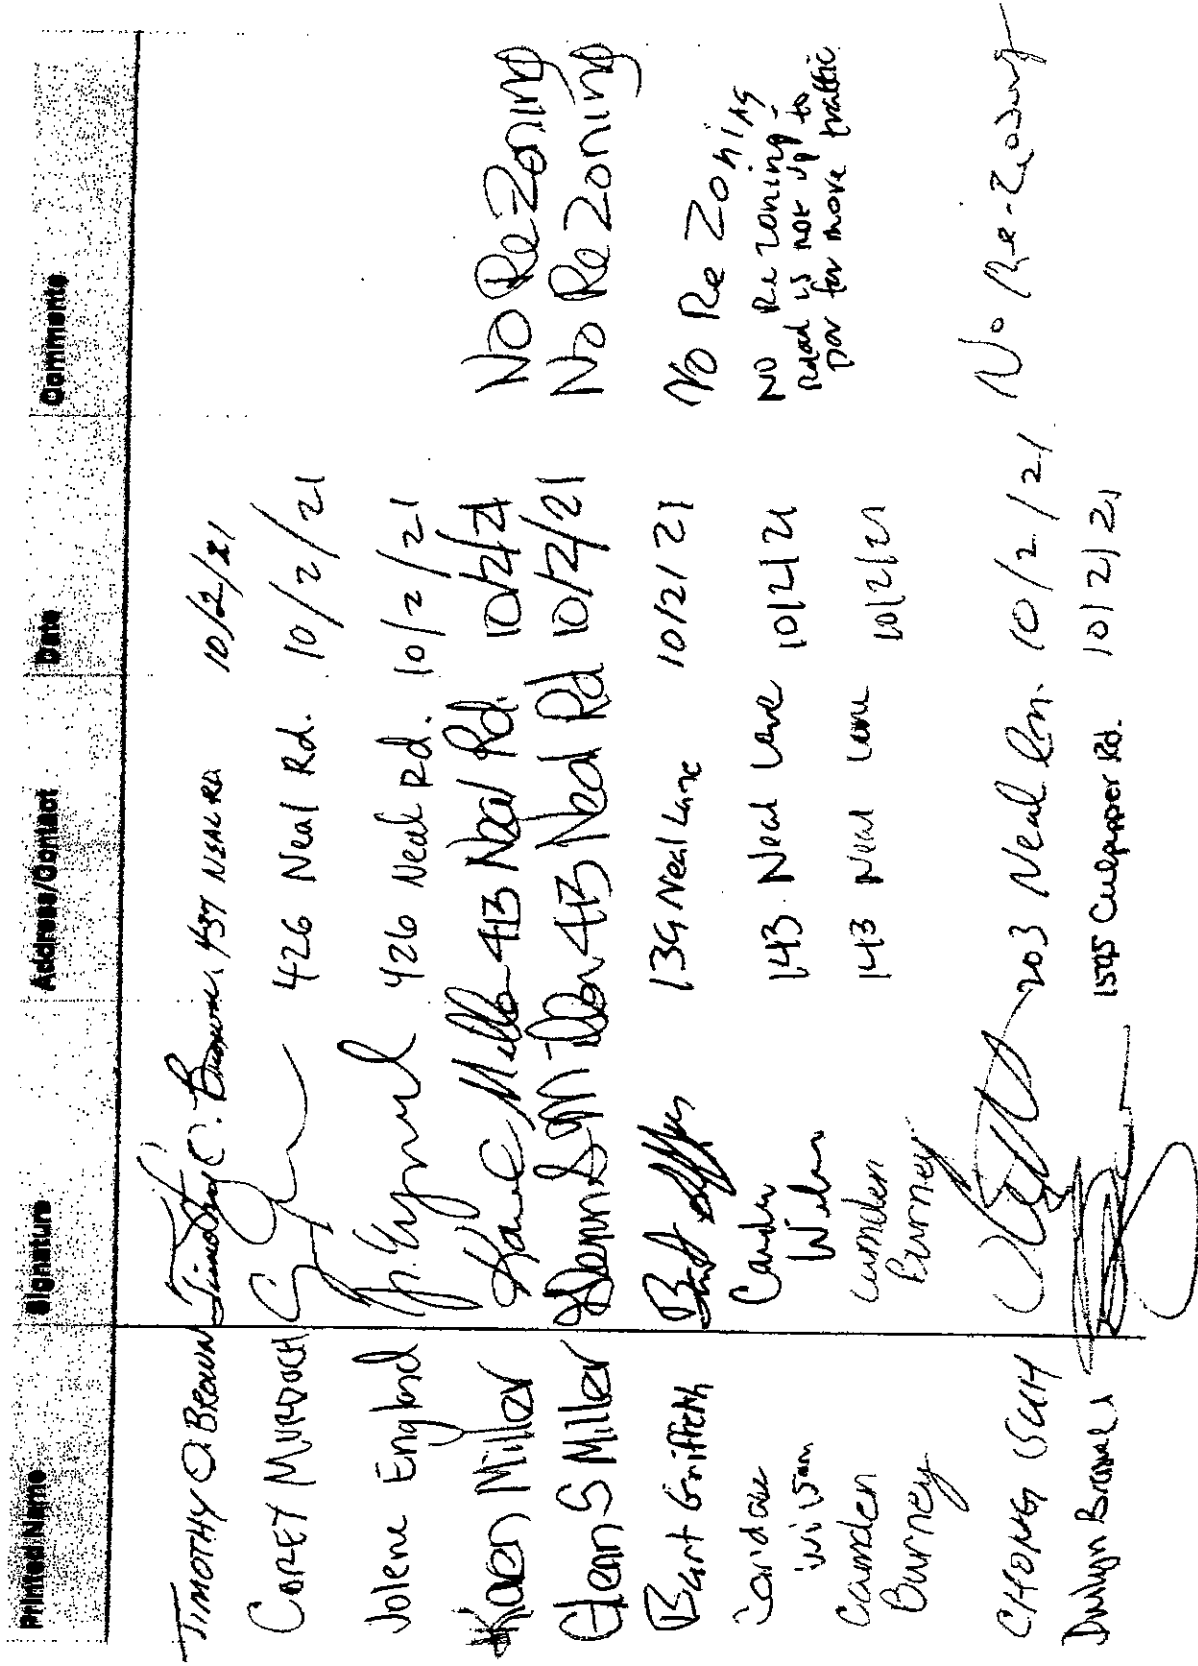 Printed Name Signature Address/Contact Date Comments
TIMOTHY O. BROWN Timothy O. Brown 437 NEAL RD. 10/2/21
COREY MURDOCH 426 Neal Rd. 10/2/21
Jolene England J. England 426 Neal Rd. 10/2/21
Karen Miller Karen Miller 413 Neal Rd. 10/2/21 No ReZoning
Glenn S Miller Glenn S Miller 413 Neal Rd 10/2/21 No ReZoning
Bart Griffith 139 Neal Lane 10/2/21 No Re Zoning
Candace Wilson 143 Neal Lane 10/2/21 NO Re Zoning -
Road is not up to
par for more traffic
Camden Camden 143 Neal Lane 10/2/21
Burney Burney
CHONG 203 Neal Ln. 10/2/21 No Re-Zoning
1595 Culpepper Rd. 10/2/21